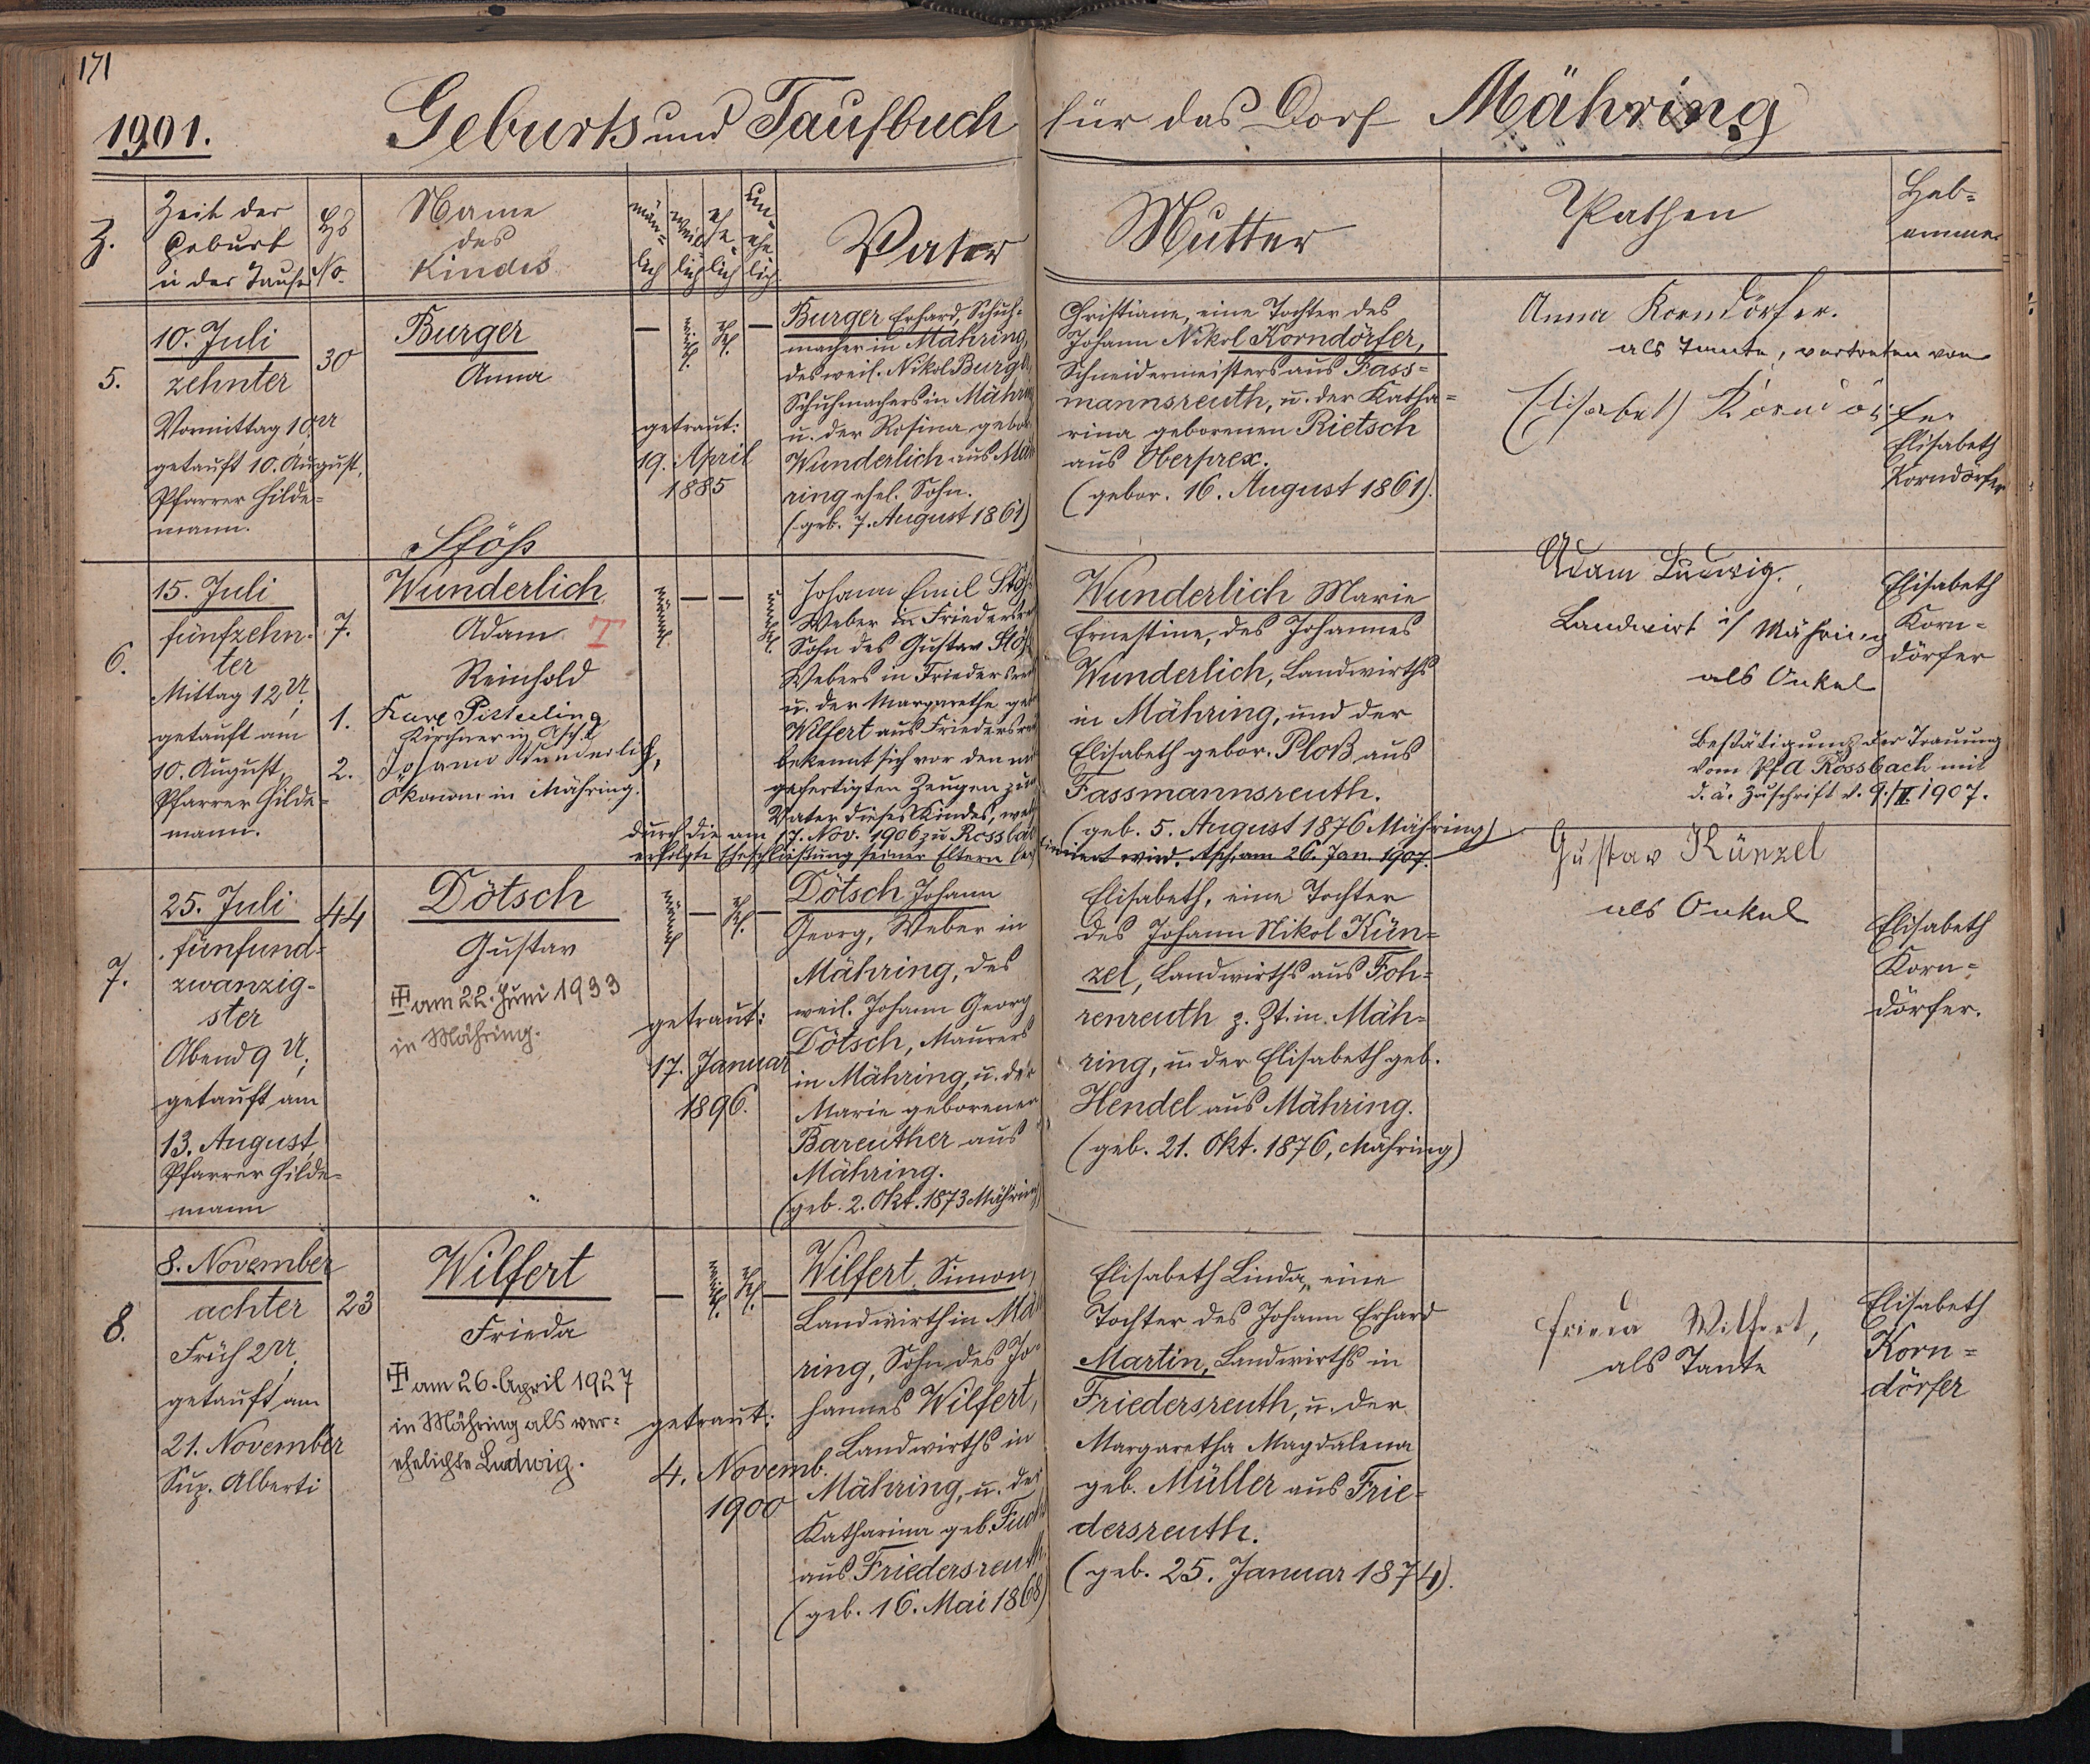 171
1901.
Geburts und Taufbuch für das Dorf Mähring
Z.
Zeit der
Geburt
u der Taufe
Hs
No.
Name
des
Kindes
män-
lich
weib
lich
ehe-
lich
un-
ehe
lich
Vater
Mutter
Pathen
Heb=
amme
5.
10. Juli
zehnter
Vormittag 10 U
getauft 10. August,
Pfarrer Hilde=
mann.
30
Burger
Anna
—
weibl.
ehel.
—
getraut:
19. April
1885
Burger Erhard, Schuh=
macher in Mähring,
des weil. Nikol Burger,
Schuhmachers in Mähring
u. der Rosina gebor.
Wunderlich aus Mäh
ring ehel. Sohn.
(geb. 7. August 1861)
Christiane, eine Tochter des
Johann Nikol Korndörfer,
Schneidermeisters aus Fass=
mannsreuth, u. der Katha=
rina geborenen Rietsch
aus Oberprex.
(gebor. 16. August 1861).
Anna Korndörfer.
als Tante, vertreten von
Elisabeth Korndörfer
Elisabeth
Korndörfer
6.
15. Juli
fünfzehn-
ter
Mittag 12 U,
getauft am
10. August,
Pfarrer Hilde-
mann.
7.
Stöß
Wunderlich
Adam T
Reinhold
1. Karl Pitterling
Kirchner in Asch
2. Johann Wunderlich,
Ökonom in Mähring.
männl.
—
—
unehel.
Johann Emil Stöß
Weber in Friedersreut
Sohn des Gustav Stöß
Webers in Friedersreut
u. der Margarethe geb
Wilfert aus Friedersreut
bekennt sich vor den mit
gefertigten Zeugen zum
Vater dieses Kindes, welch
durch die am 17. Nov. 1906 zu Rossbach
erfolgte Eheschließung seiner Eltern legi
timiert wird. Asch, am 26. Jan. 1907.
Wunderlich Marie
Ernestine, des Johannes
Wunderlich, Landwirths
in Mähring, und der
Elisabeth gebor. Ploß aus
Fassmannsreuth.
(geb. 5. August 1876 Mähring)
Adam Ludwig.
Landwirt i/ Mähring
als Onkel
Bestätigung der Trauung
vom PfA Rossbach mit
d. ä. Zuschrift v. 9./II. 1907.
Elisabeth
Korn=
dörfer
7.
25. Juli
fünfund=
zwanzig-
ster
Abend 9 U,
getauft am
13. August,
Pfarrer Hilde=
mann
44
Dötsch
Gustav
am 22. Juni 1933
in Mähring.
männl
—
ehel.
—
getraut:
17. Januar
1896.
Dötsch Johann
Georg, Weber in
Mähring, des
weil. Johann Georg
Dötsch, Maurers
in Mähring, u. der
Marie geborenen
Bareuther aus
Mähring.
(geb. 2. Okt. 1873 Mähring)
Elisabeth, eine Tochter
des Johann Nikol Kün=
zel, Landwirths aus Foh=
renreuth z. Zt. in Mäh=
ring, u. der Elisabeth geb.
Hendel aus Mähring.
(geb. 21. Okt. 1876, Mähring)
Gustav Künzel
als Onkel
Elisabeth
Korn=
dörfer.
8.
8. November
achter
Früh 2 U,
getauft am
21. November
Sup. Alberti
23
Wilfert
Frieda
am 26. April 1927
in Mähring als ver=
ehelichte Ludwig.
—
weibl.
ehel.
—
getraut:
4. Novemb.
1900
Wilfert Simon,
Landwirth in Mäh
ring, Sohn des Jo=
hannes Wilfert,
Landwirths in
Mähring, u. der
Katharina geb. Fuchs
aus Friedersreuth
(geb. 16. Mai 1868)
Elisabeth Linda, eine
Tochter des Johann Erhard
Martin, Landwirths in
Friedersreuth, u. der
Margaretha Magdalena
geb. Müller aus Frie=
dersreuth.
(geb. 25. Januar 1874).
Frieda Wilfert,
als Tante
Elisabeth
Korn=
dörfer